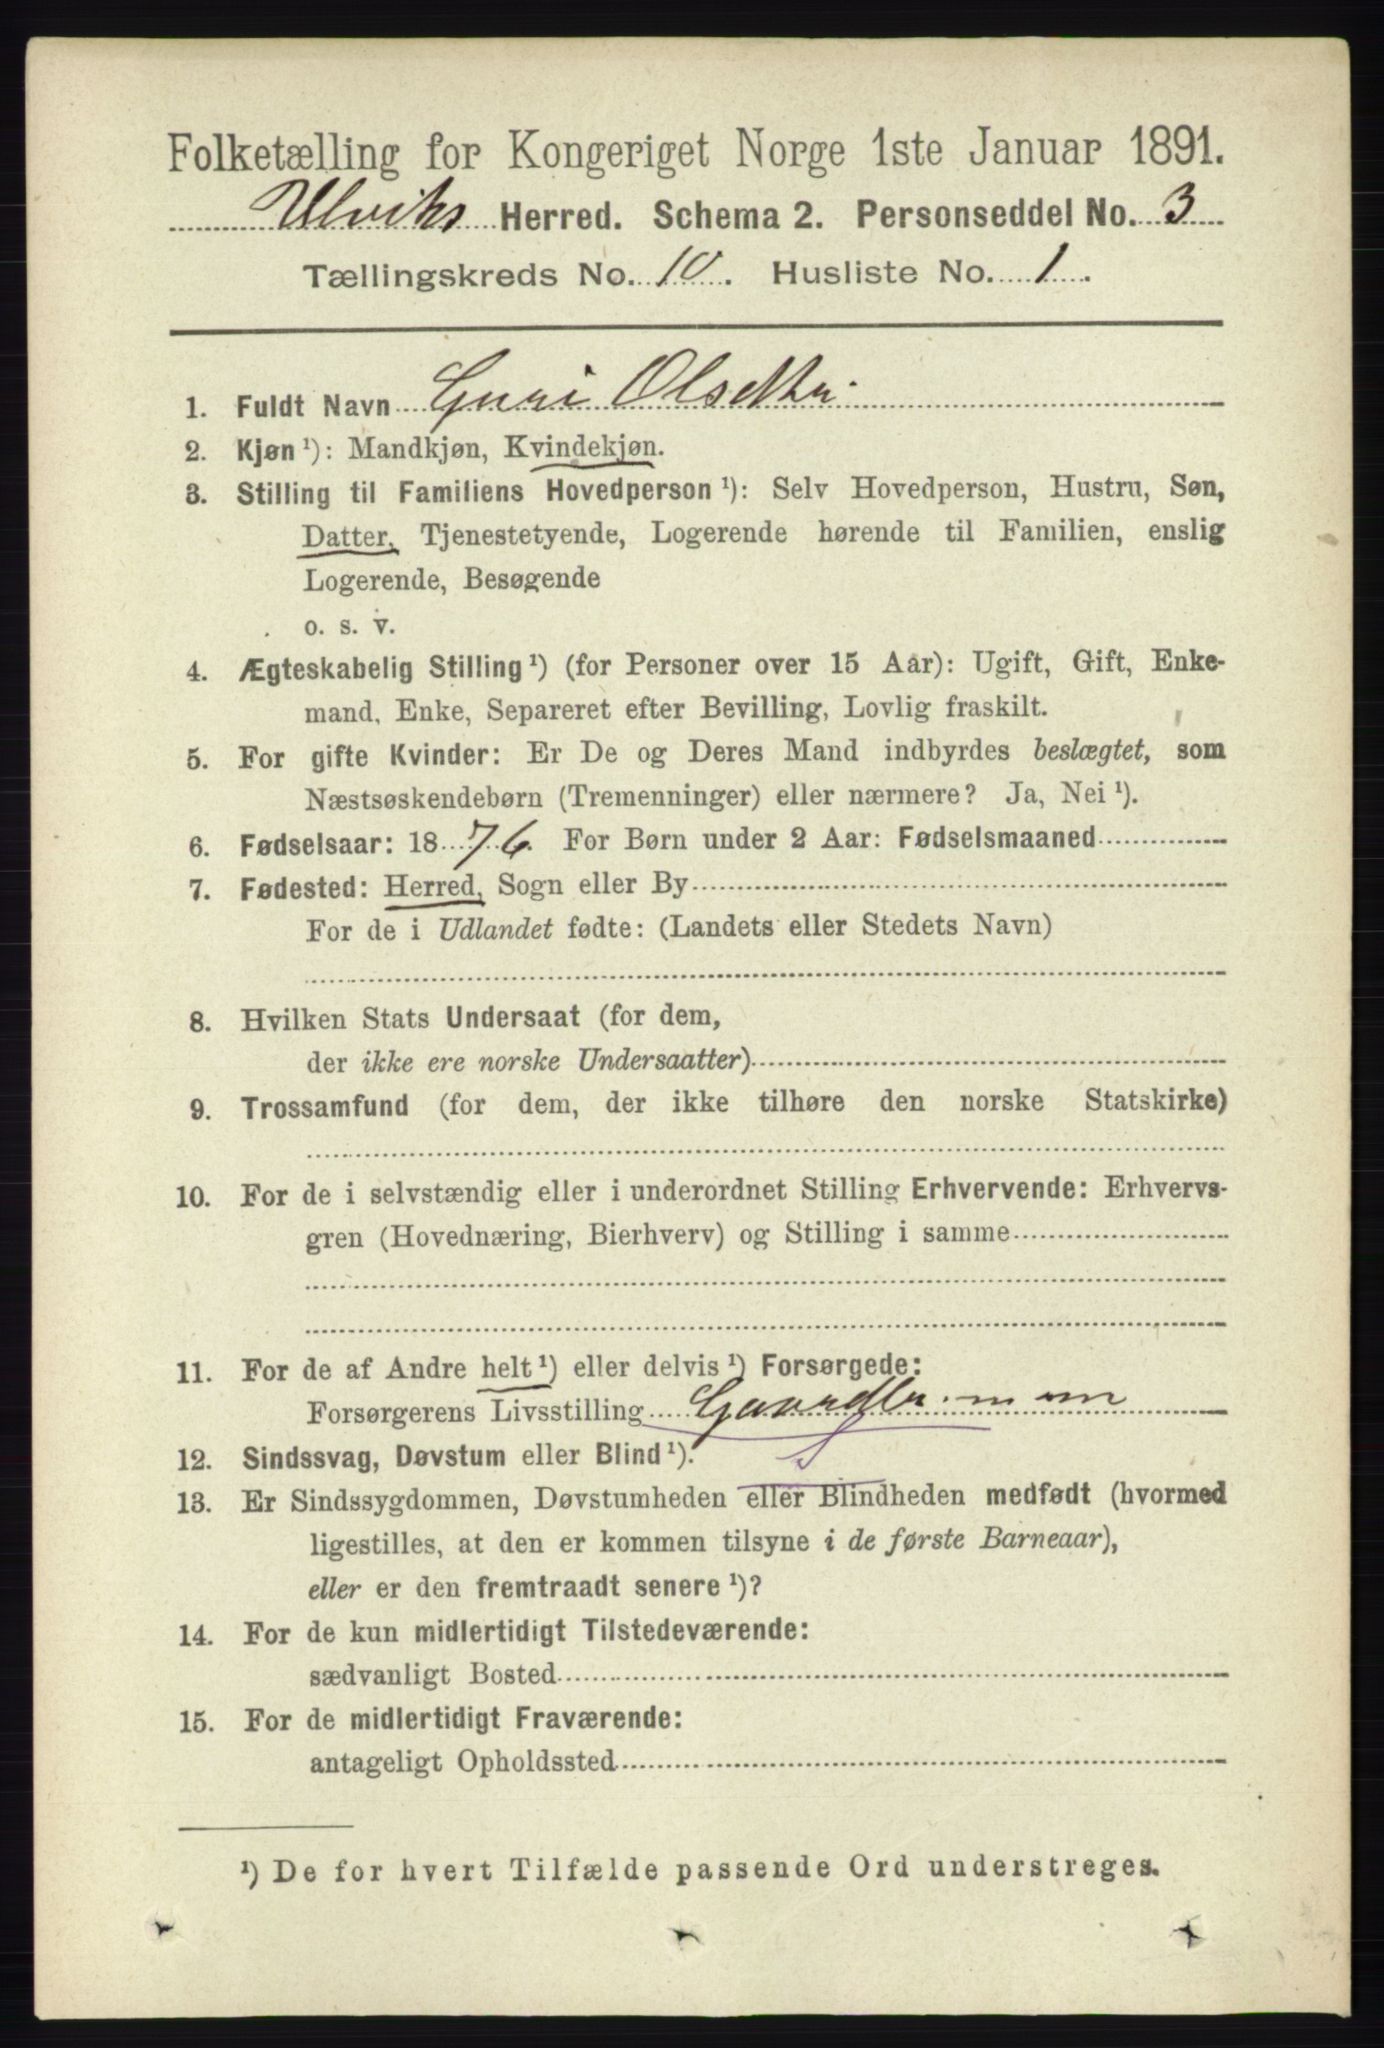 Folketælling for Kongeriget Norge 1ste Januar 1891.
Ulviks Herred. Schema 2. Personseddel No. 3
Tællingskreds No. 10. Husliste No. 1.
1. Fuldt Navn Guri Olsdtr.
2. Kjøn ¹): Mandkjøn, Kvindekjøn.
3. Stilling til Familiens Hovedperson ¹): Selv Hovedperson, Hustru, Søn,
Datter, Tjenestetyende, Logerende hørende til Familien, enslig
Logerende, Besøgende
o. s. v.
4. Ægteskabelig Stilling ¹) (for Personer over 15 Aar): Ugift, Gift, Enke-
mand, Enke, Separeret efter Bevilling, Lovlig fraskilt.
5. For gifte Kvinder: Er De og Deres Mand indbyrdes beslægtet, som
Næstsøskendebørn (Tremenninger) eller nærmere? Ja, Nei ¹).
6. Fødselsaar: 1876. For Børn under 2 Aar: Fødselsmaaned
7. Fødested: Herred, Sogn eller By
For de i Udlandet fødte: (Landets eller Stedets Navn)
8. Hvilken Stats Undersaat (for dem,
der ikke ere norske Undersaatter)
9. Trossamfund (for dem, der ikke tilhøre den norske Statskirke)
10. For de i selvstændig eller i underordnet Stilling Erhvervende: Erhvervs-
gren (Hovednæring, Bierhverv) og Stilling i samme
11. For de af Andre helt ¹) eller delvis ¹) Forsørgede:
Forsørgerens Livsstilling
12. Sindssvag, Døvstum eller Blind ¹). S
13. Er Sindssygdommen, Døvstumheden eller Blindheden medfødt (hvormed
ligestilles, at den er kommen tilsyne i de første Barneaar),
eller er den fremtraadt senere ¹)?
14. For de kun midlertidigt Tilstedeværende:
sædvanligt Bosted
15. For de midlertidigt Fraværende:
antageligt Opholdssted
¹) De for hvert Tilfælde passende Ord understreges.